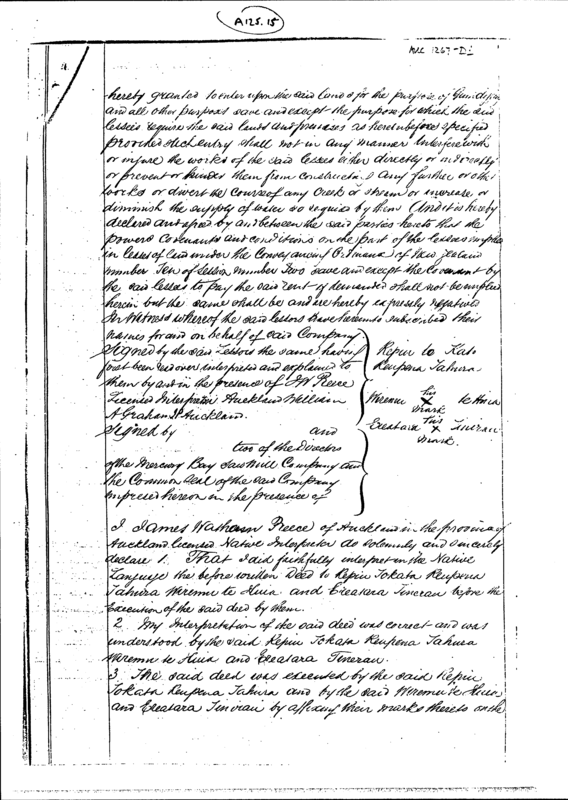 A125.15
MLC 1267-D1
4.
hereby granted to enter upon the said lands for the purpose of
and all other purposes save and except the purpose for which the said
lessees require the said lands and premises as hereinbefore specified
provided such entry shall not in any manner interfere with
or injure the works of the said lessees either directly or indirectly
or prevent or hinder them from constructing any further or other
works or divert the course of any Creek or Stream or increase or
diminish the supply of water so required by them And it is hereby
declared and agreed by and between the said parties hereto that the
powers Covenants and conditions on the part of the lessees implied
in leases of land under the Conveyancing Ordinance of New Zealand
number Ten of Session number Two save and except the Covenant by
the said lessees to pay the said rent if demanded shall not be implied
herein but the same shall be and are hereby expressly negatived
In Witness whereof the said lessors have hereunto subscribed their
names for and on behalf of said Company
Signed by the said Lessors the same having
first been read over interpreted and explained to
them by and in the presence of J W Preece
Licensed Interpreter Auckland William
A Graham Auckland.
Repiu to Kato
Reupena Tahura
Wiremu his X mark te Huia
Ereatara his X mark Tinirau
Signed by and
two of the Directors
of the Mercury Bay Saw Mill Company and
the Common Seal of the said Company
impressed hereon in the presence of
I James Wathan Preece of Auckland in the province of
Auckland licensed Native Interpreter do solemnly and sincerely
declare 1. That I did faithfully interpret in the Native
Language the before written Deed to Repiu Tokata Reupena
Tahura Wiremu te Huia and Ereatara Tinirau before the
Execution of the said deed by them.
2. My Interpretation of the said deed was correct and was
understood by the said Repiu Tokata Reupena Tahura
Wiremu te Huia and Ereatara Tinirau.
3. The said deed was executed by the said Repiu
Tokata Reupena Tahura and by the said Wiremu te Huia
and Ereatara Tinirau by affixing their marks thereto on the